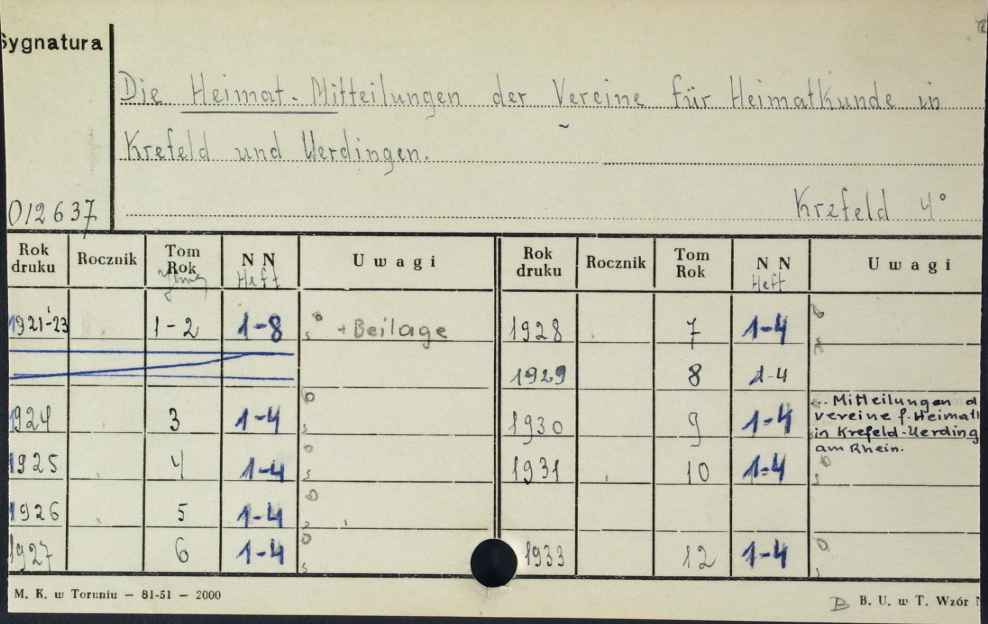 Sygnatura
Die Heimat. Mitteilungen der Vereine für Heimatkunde in
Krefeld und Uerdingen.
012637
Krefeld 4°
Rok druku Rocznik Tom Rok N N Heft U w a g i
1921-23 1-2 1-8 + Beilage
1924 3 1-4
1925 4 1-4
1926 5 1-4
1927 6 1-4
Rok druku Rocznik Tom Rok N N Heft U w a g i
1928 7 1-4
1929 8 1-4
1930 9 1-4
... Mitteilungen d
vereine f. Heimat
in Krefeld-Uerding
am Rhein.
1931 10 1-4
1933 12 1-4
M. K. w Toruniu — 81-51 — 2000
B. U. w T. Wzór